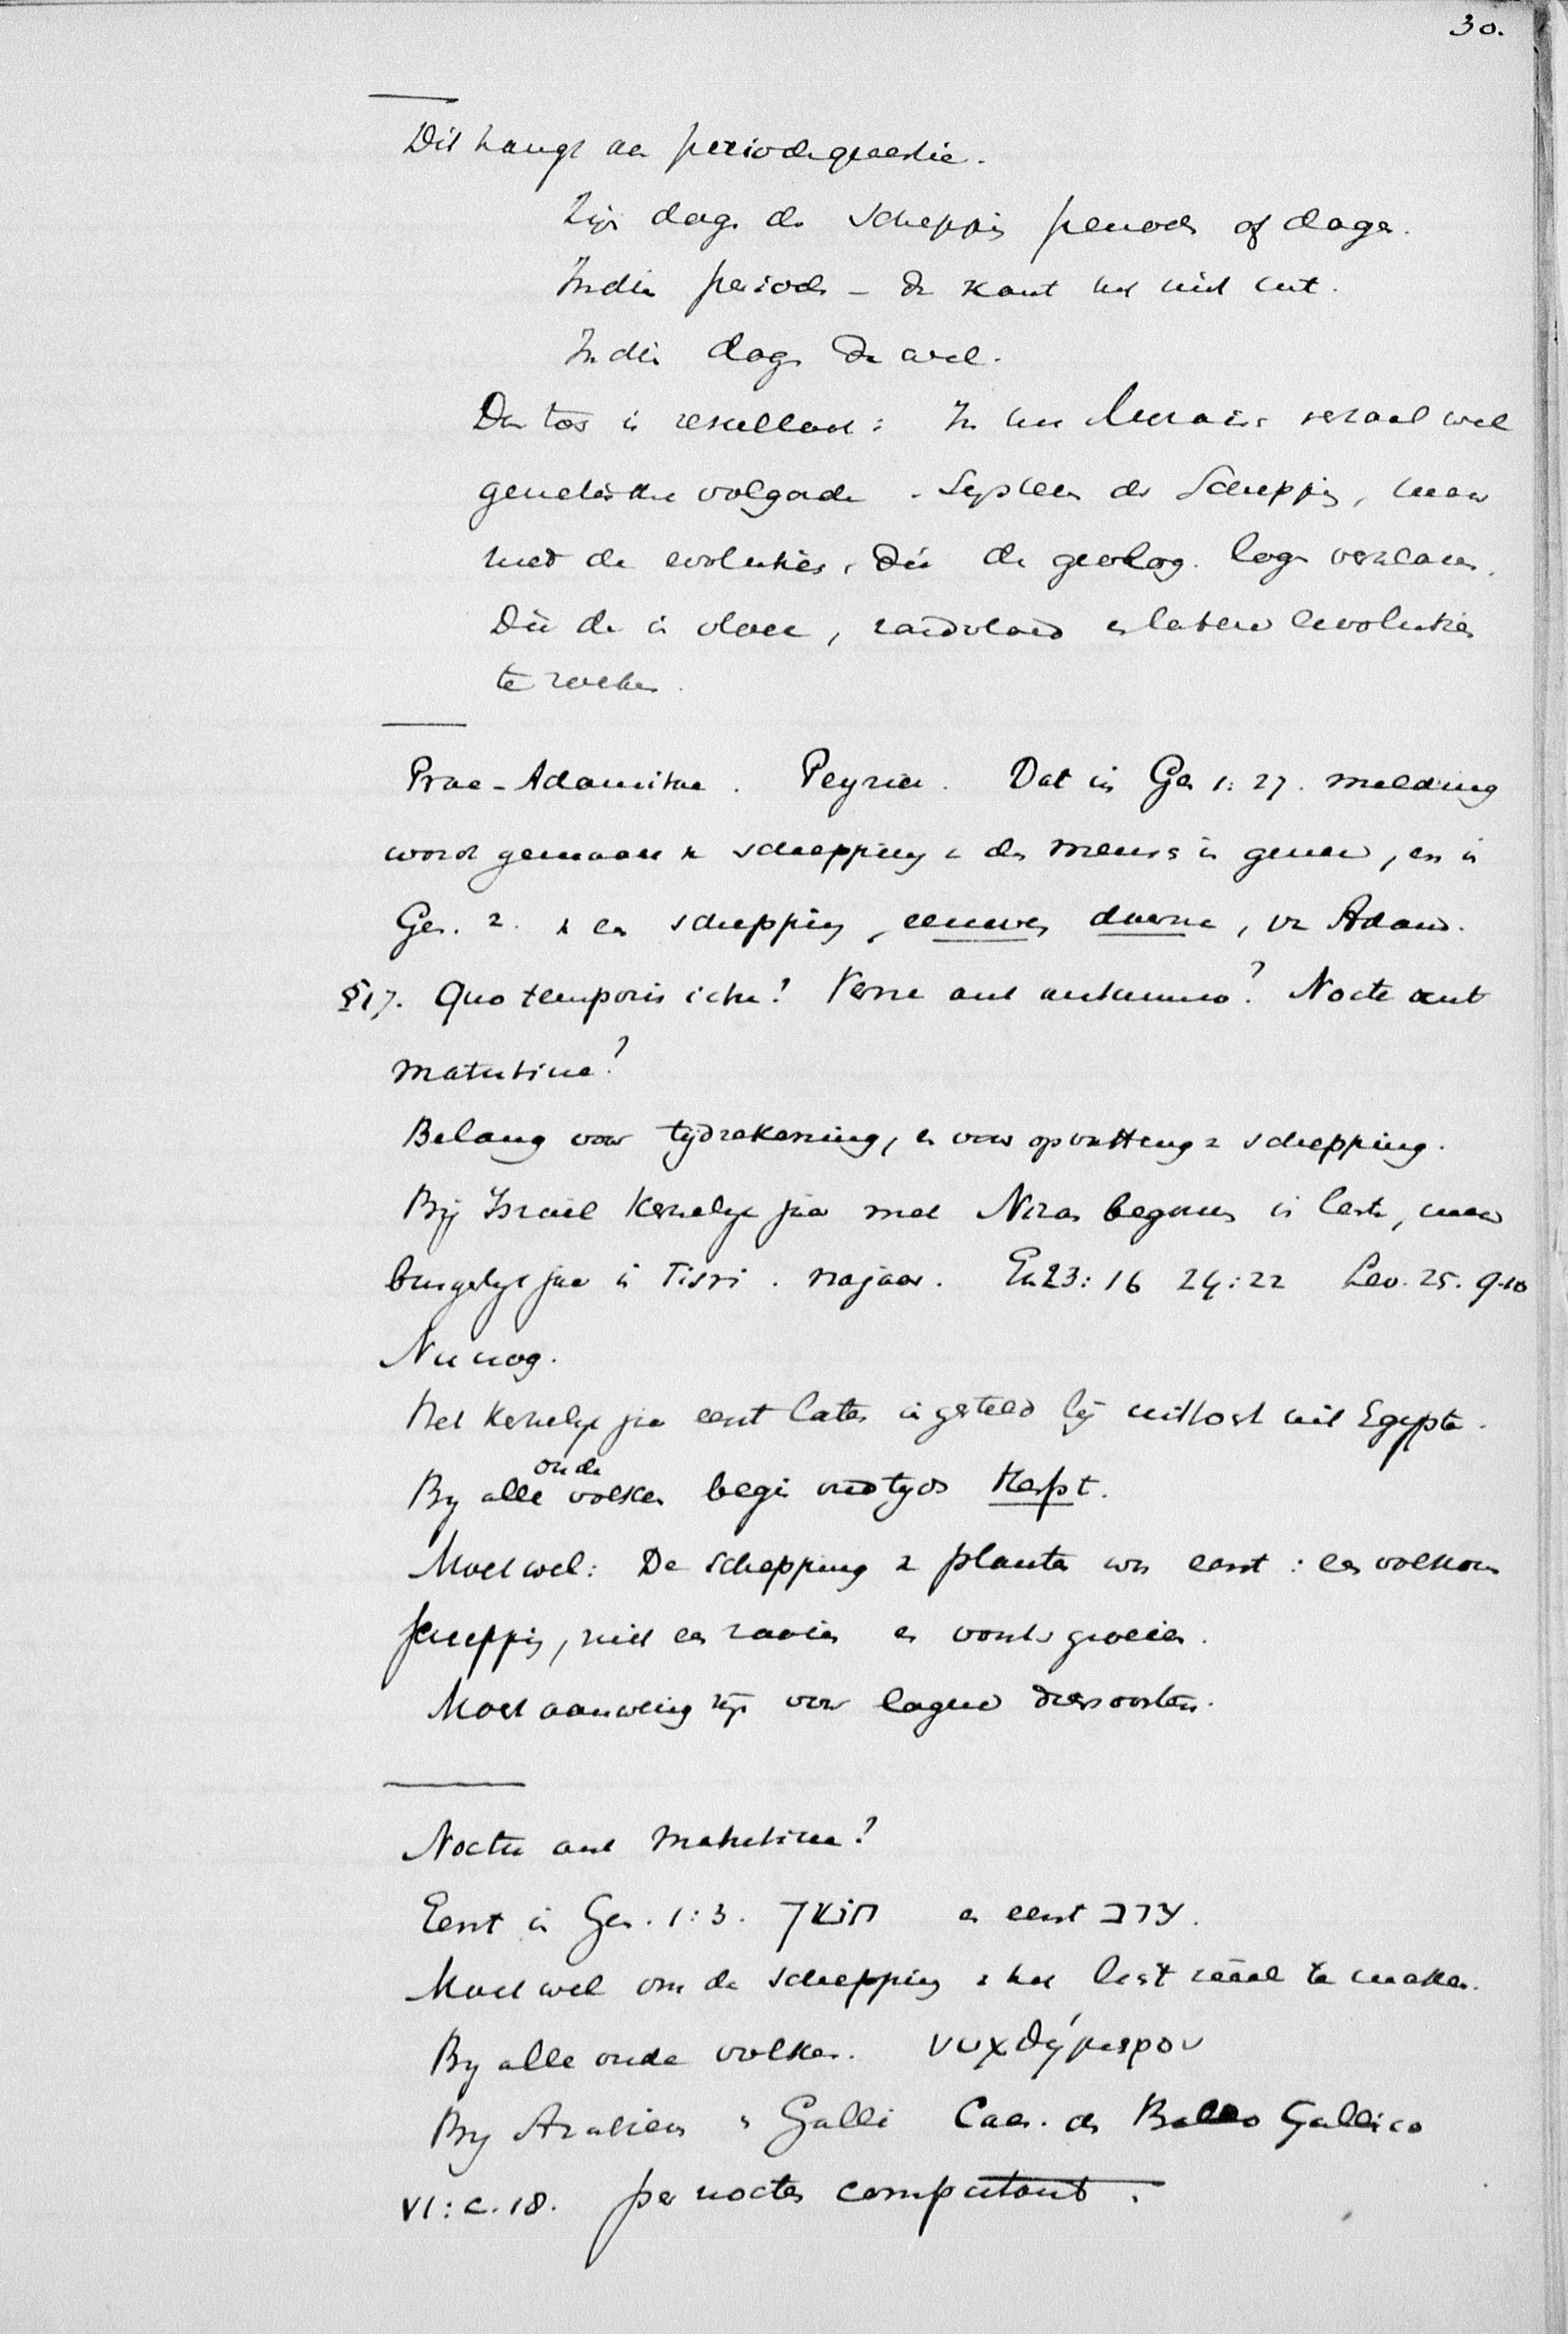 30.
Dit hangt aan periodequaestie.
Zijn dagen der Schepping perioden of dagen.
Indien perioden – dan komt het niet uit.
Indien dagen dan wel.
Dan toch is resultaat: In het Mozaïsch verhaal wel
genetische volgorde. Systeem der Schepping, maar
niet de evolutiën, die de geolog. logen verklaren.
Die de in vloed, zandvloed en latere evolutiën
te zoeken.
Prae-Adamitae. Peyrier. Dat in Gen 1:27. melding
word gemaakt v schepping v den mensch in genere, en in
Gen. 2. v een schepping, eeuwen daarna, van Adam.
§17. Quo temporis ictu? Verne aut autumno? Nocte aut
matutine?
Belang voor tijdrekening, en voor opvatting v schepping.
Bij Israël Kerkelijk jaar met Nizan begonnen in lente, maar
burgelijk jaar in Tisri. najaar. Ex 23:16 24:22 Lev. 25. 9-10
Nu nog.
Het Kerkelijk jaar eerst later ingesteld bij uittocht uit Egypte.
By alle oude volken begin oudtyds Herfst.
Moet wel: De Schepping v planten was eerst: een volkomen
schepping, niet een zaaien en voorts groeien.
Moet aanwezig zijn voor lagere diersoorten.
Noctu aut Matutine?
Eerst in Gen. 1:3. אור en eerst ערב.
Moet wel om de schepping v het licht reëel te maken.
By alle oude volken. νυχθήμερον
By Arabieren en Galli Caes. de Bello Gallico
VI: c. 18. per noctes computant.